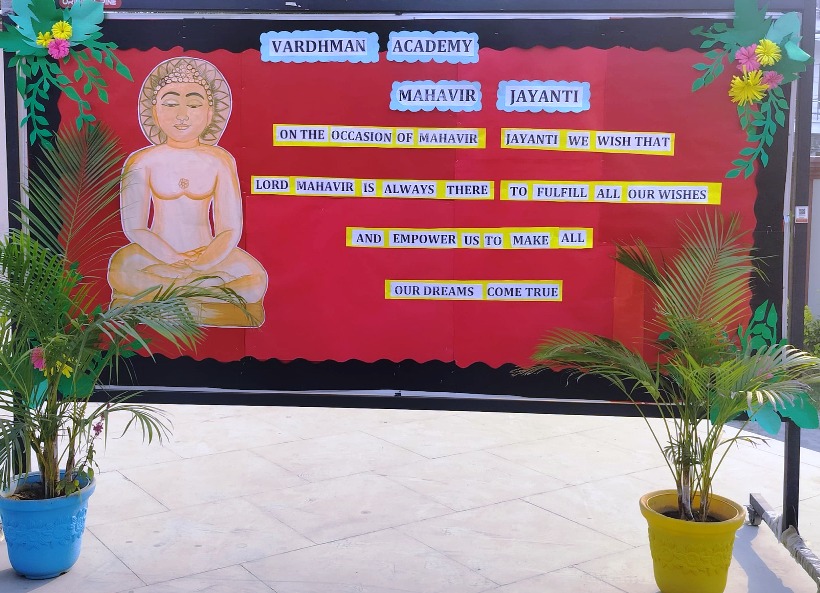 VARDHMAN ACADEMY
MAHAVIR JAYANTI
ON THE OCCASION OF MAHAVIR JAYANTI WE WISH THAT
LORD MAHAVIR IS ALWAYS THERE TO FULFILL ALL OUR WISHES
AND EMPOWER US TO MAKE ALL
OUR DREAMS COME TRUE